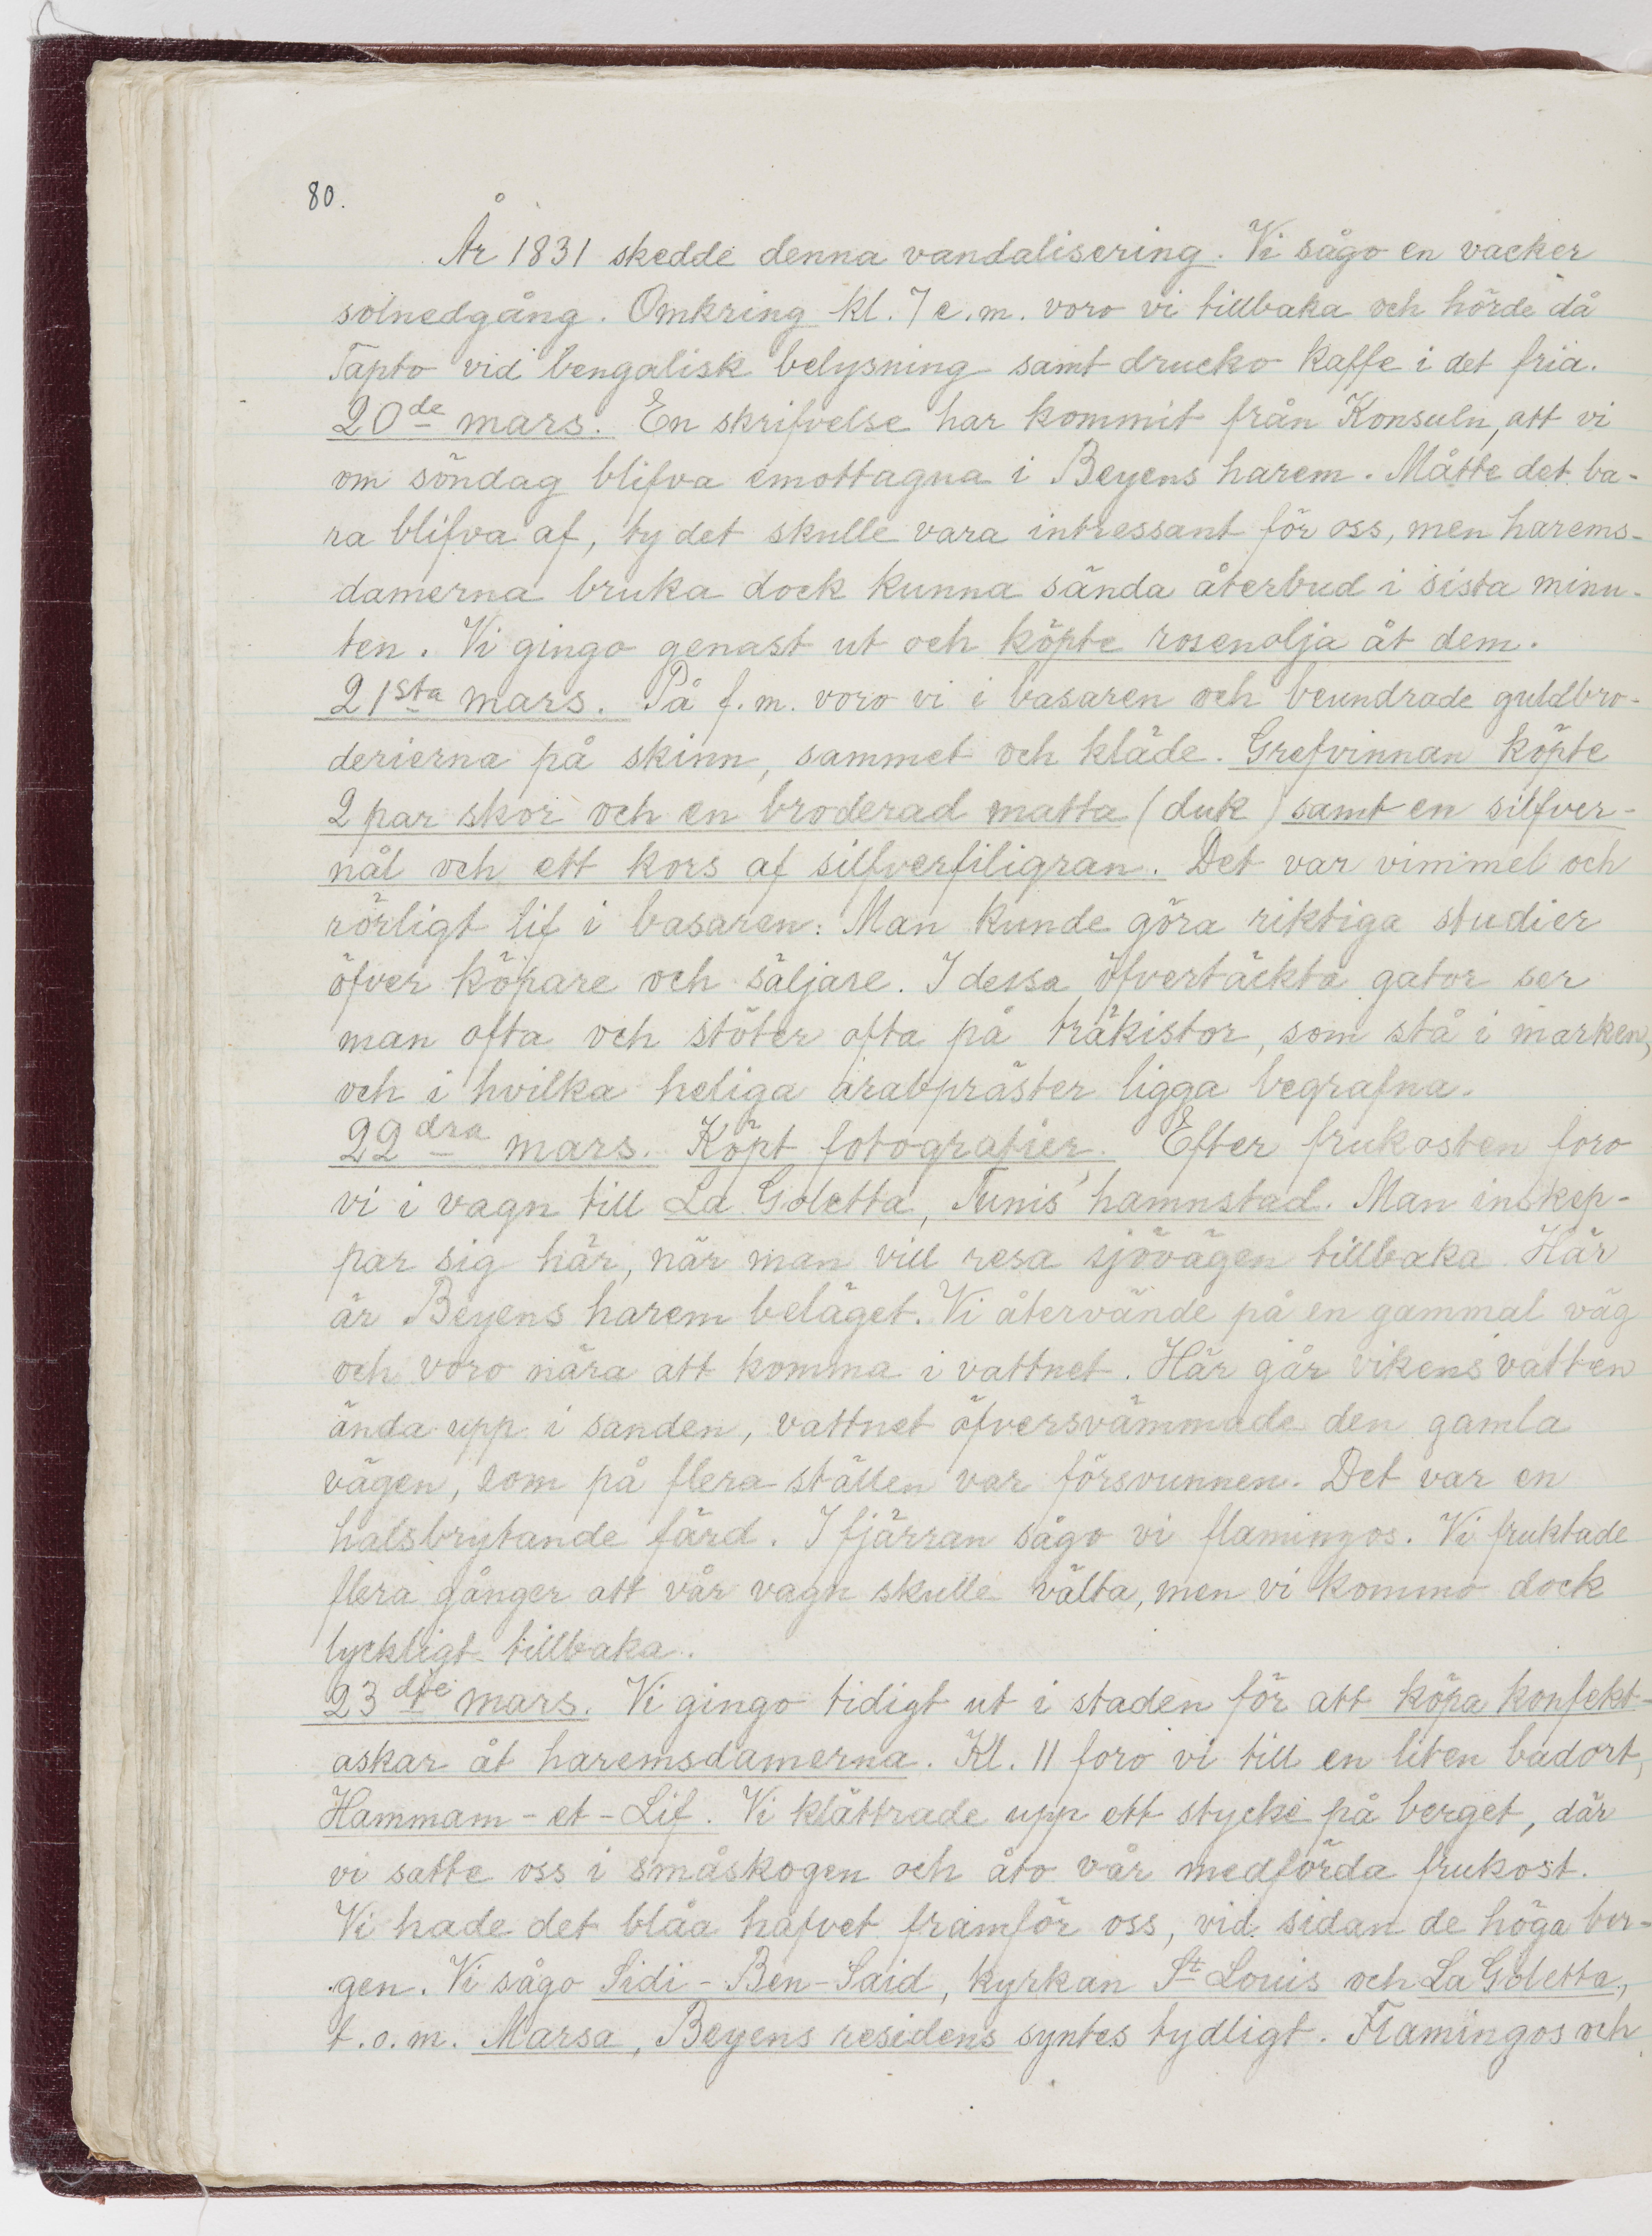 80.
År 1831 skedde denna vandalisering. Vi sågo en vacker
solnedgång. Omkring kl. 7 e.m. voro vi tillbaka och hörde då
Tapto vid bengalisk belysning samt drucko kaffe i det fria.
20de mars. En skrifvelse har kommit från Konsuln, att vi
om söndag blifva emottagna i Beyens harem. Måtte det ba-
ra blifva af, ty det skulle vara intressant för oss, men harems-
damerna bruka dock kunna sända återbud i sista minu-
ten. Vi gingo genast ut och köpte rosenolja åt dem.
21sta mars. På f.m. voro vi i basaren och beundrade guldbro-
derierna på skinn, sammet och kläde. Grefvinnan köpte
2 par skor och en broderad matta (duk) samt en silfver-
nål och ett kors af silfverfiligran. Det var vimmel och
rörligt lif i basaren. Man kunde göra riktiga studier
öfver köpare och säljare. I dessa öfvertäckta gator ser
man ofta och stöter ofta på träkistor, som stå i marken,
och i hvilka heliga arabpräster ligga begrafna.
22dra mars. Köpt fotografier. Efter frukosten foro
vi i vagn till La Goletta, Tunis' hamnstad. Man inskep-
par sig här, när man vill resa sjövägen tillbaka. Här
är Beyens harem beläget. Vi återvände på en gammal väg
och voro nära att komma i vattnet. Här går vikens vatten
ända upp i sanden, vattnet öfversvämmade den gamla
vägen, som på flera ställen var försvunnen. Det var en
halsbrytande färd. I fjärran sågo vi flamingos. Vi fruktade
flera gånger att vår vagn skulle välta, men vi kommo dock
lyckligt tillbaka.
23dje mars. Vi gingo tidigt ut i staden för att köpa konfekt-
askar åt haremsdamerna. Kl. 11 foro vi till en liten badort,
Hammam-et-Lif. Vi klättrade upp ett stycke på berget, där
vi satte oss i småskogen och åto vår medförda frukost.
Vi hade det blåa hafvet framför oss, vid sidan de höga ber-
gen. Vi sågo Sidi-Ben-Said, kyrkan St Louis och La Goletta,
t.o.m. Marsa, Beyens residens syntes tydligt. Flamingos och